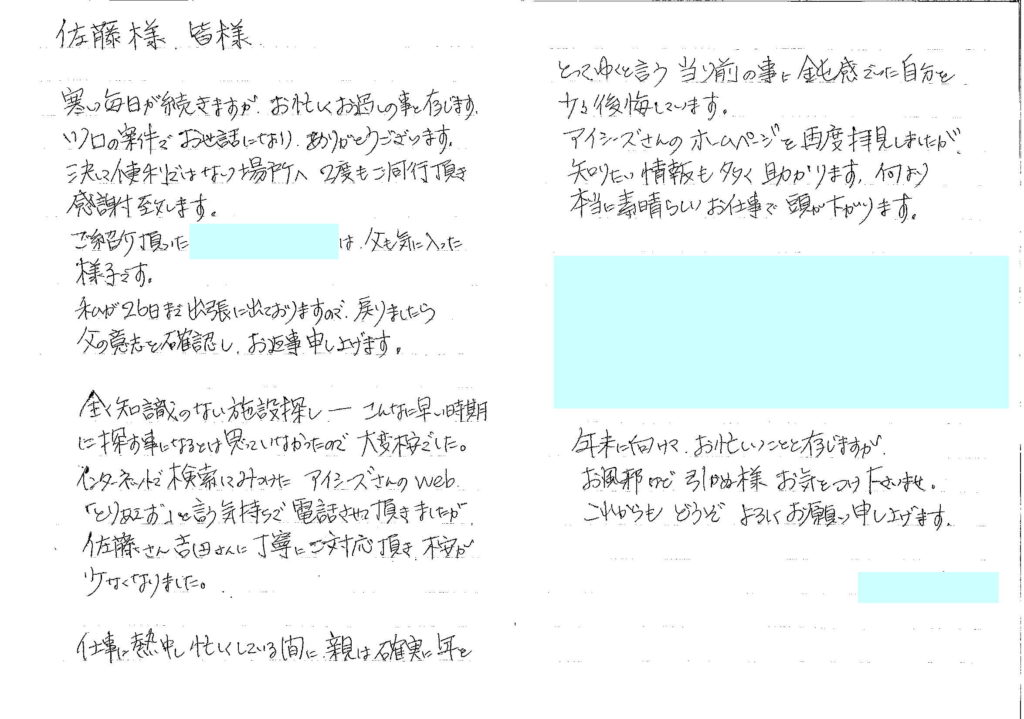 佐藤様 皆様
寒い毎日が続きますが、お忙しくお過しの事と存じます。
の案件で お世話になり、ありがとうございます。
決して便利ではない場所へ 2度もご同行頂き
感謝付致します。
ご紹介頂いた は、父も気に入った
様子です。
私が26日まで出張に出ておりますので、戻りましたら
父の意志を確認し、お返事申し上げます。
全く知識のない施設探し ― こんなに早い時期
に探す事になるとは思っていなかったので 大変不安でした。
インターネットで検索してみつけた アイシーズさんのweb
「とりあえず」と言う気持ちで 電話させて頂きましたが
佐藤さん吉田さんに丁寧にご対応頂き、不安が
少なくなりました。
仕事に熱中し忙しくしている間に、親は確実に年を
とってゆくと言う 当り前の事に 鈍感でいた自分を
少々後悔しています。
アイシーズさんの ホームページを 再度拝見しましたが、
知りたい情報も多く助かります。何より
本当に素晴らしいお仕事で 頭が下がります。
年末に向けて、お忙しいことと存じますが
お風邪など 引かぬ様 お気をつけ下さいませ。
これからも どうぞ よろしくお願い申し上げます。